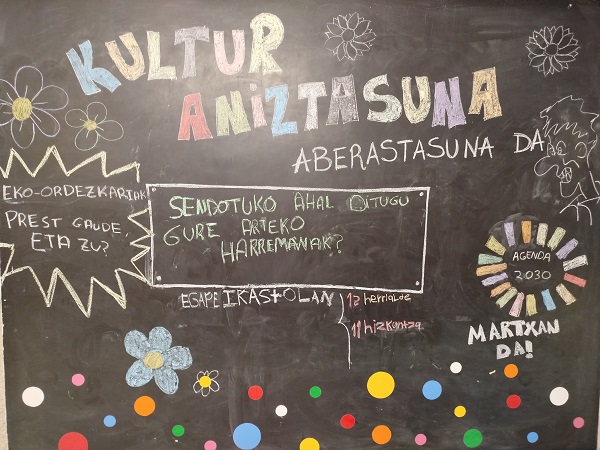 KULTUR
ANIZTASUNA
ABERASTASUNA DA
EKO-ORDEZKARIAK
PREST GAUDE,
ETA ZU?
SENDOTUKO AHAL DITUGU
GURE ARTEKO
HARREMANAK?
EGAPE IKASTOLAN
12 herrialde
11 hizkuntza
AGENDA
2030
MARTXAN
DA!